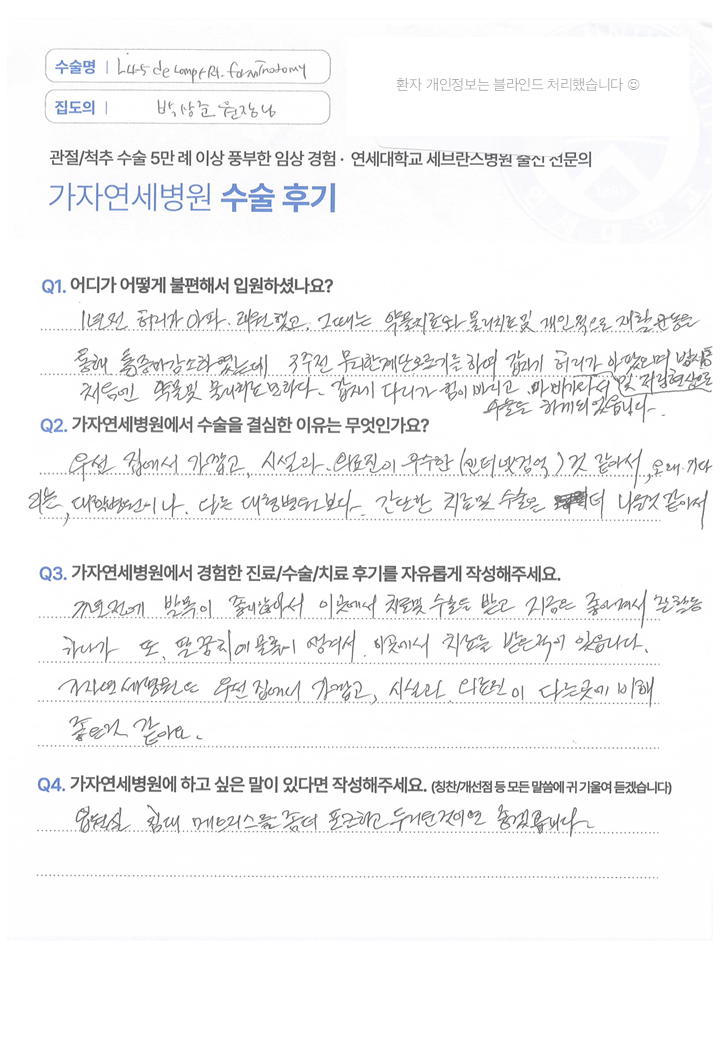 수술명 | L4-5 de comp + Rt. foraminotomy
집도의 | 박상준 원장님
환자 개인정보는 블라인드 처리했습니다 ☺
관절/척추 수술 5만 례 이상 풍부한 임상 경험 · 연세대학교 세브란스병원 출신 전문의
가자연세병원 수술 후기
Q1. 어디가 어떻게 불편해서 입원하셨나요?
1년전 허리가 아파. 내원했고. 그때는 약물치료와 물리치료및 개인적으로 재활운동을
통해 통증이감소하였는데 3주전 무리한계단오르기를 하여 갑자기 허리가 아팠으며
처음엔 약물및 물리치료 갑자기 다리가 힘이 빠지고 및 저림현상으로
수술도 하게되었습니다.
Q2. 가자연세병원에서 수술을 결심한 이유는 무엇인가요?
우선 집에서 가깝고, 시설과. 의료진이 우수한 (인터넷검색) 것 같아서, 오래 기다
리는, 대학병원이나. 다른 대형병원보다. 간단한 치료및 수술은 더 나을것 같아서
Q3. 가자연세병원에서 경험한 진료/수술/치료 후기를 자유롭게 작성해주세요.
발목이 좋지않아서 이곳에서 치료및 수술을 받고 지금은 좋아져서 잘활동
하다가 또, 팔꿈치에 물혹이 생겨서. 이곳에서 치료를 받은적이 있습니다.
가자연세병원은 우선 집에서 가깝고, 시설과. 의료진이 다른곳에 비해
좋은것 같아요.
Q4. 가자연세병원에 하고 싶은 말이 있다면 작성해주세요. (칭찬/개선점 등 모든 말씀에 귀 기울여 듣겠습니다)
입원실 침대 메트리스를 좀더 포근하고 두꺼운것이면 좋겠습니다.